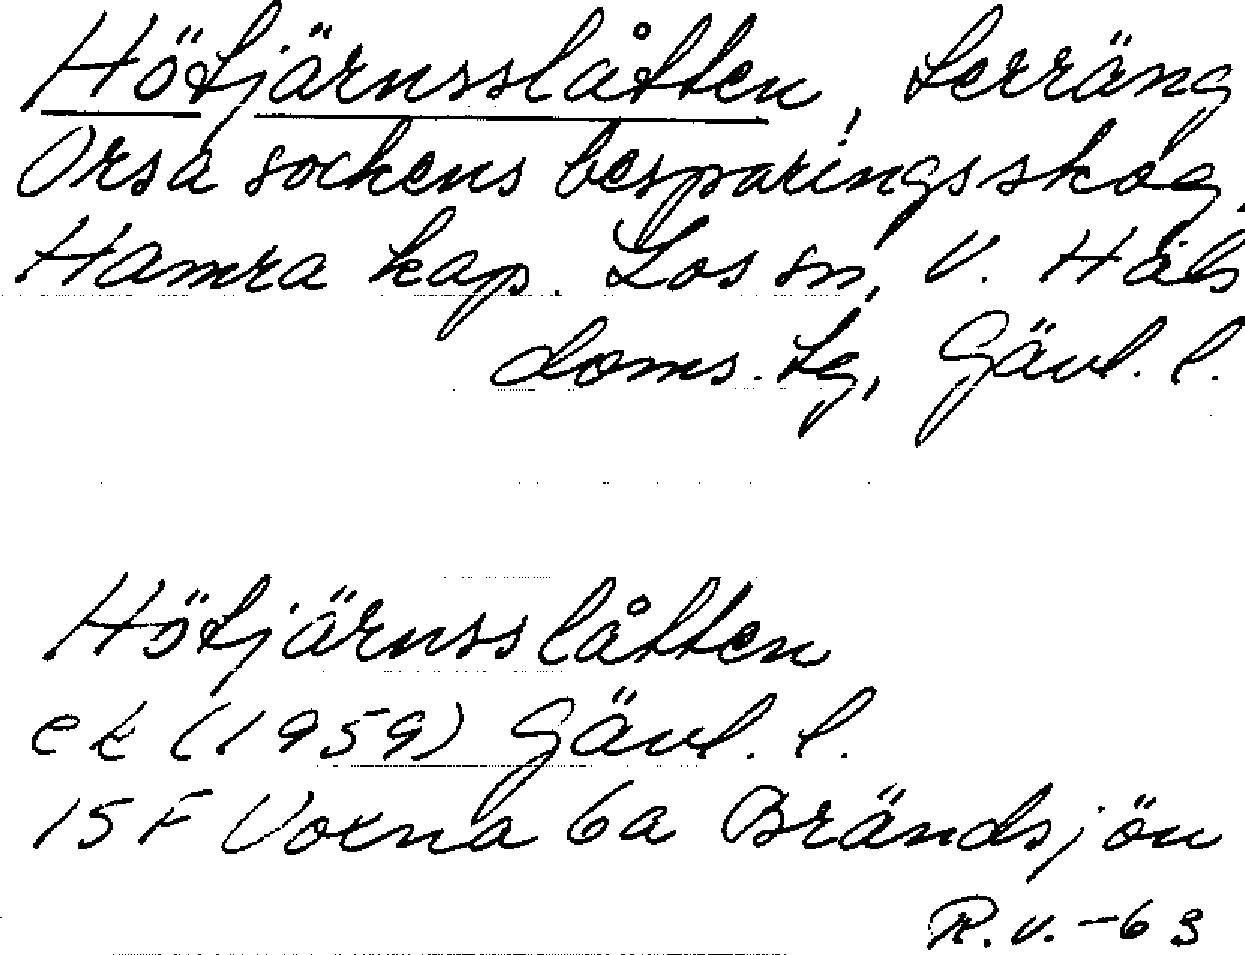 Hötjärnsslåtten, terräng
Orsa sockens besparingsskog,
Hamra kap. Los sn, V. Häls
doms. lg, Gävl. l.
Hötjärnsslåtten
ek (1959) Gävl. l.
15 F Voxna 6a Brändsjön
R.V. -63